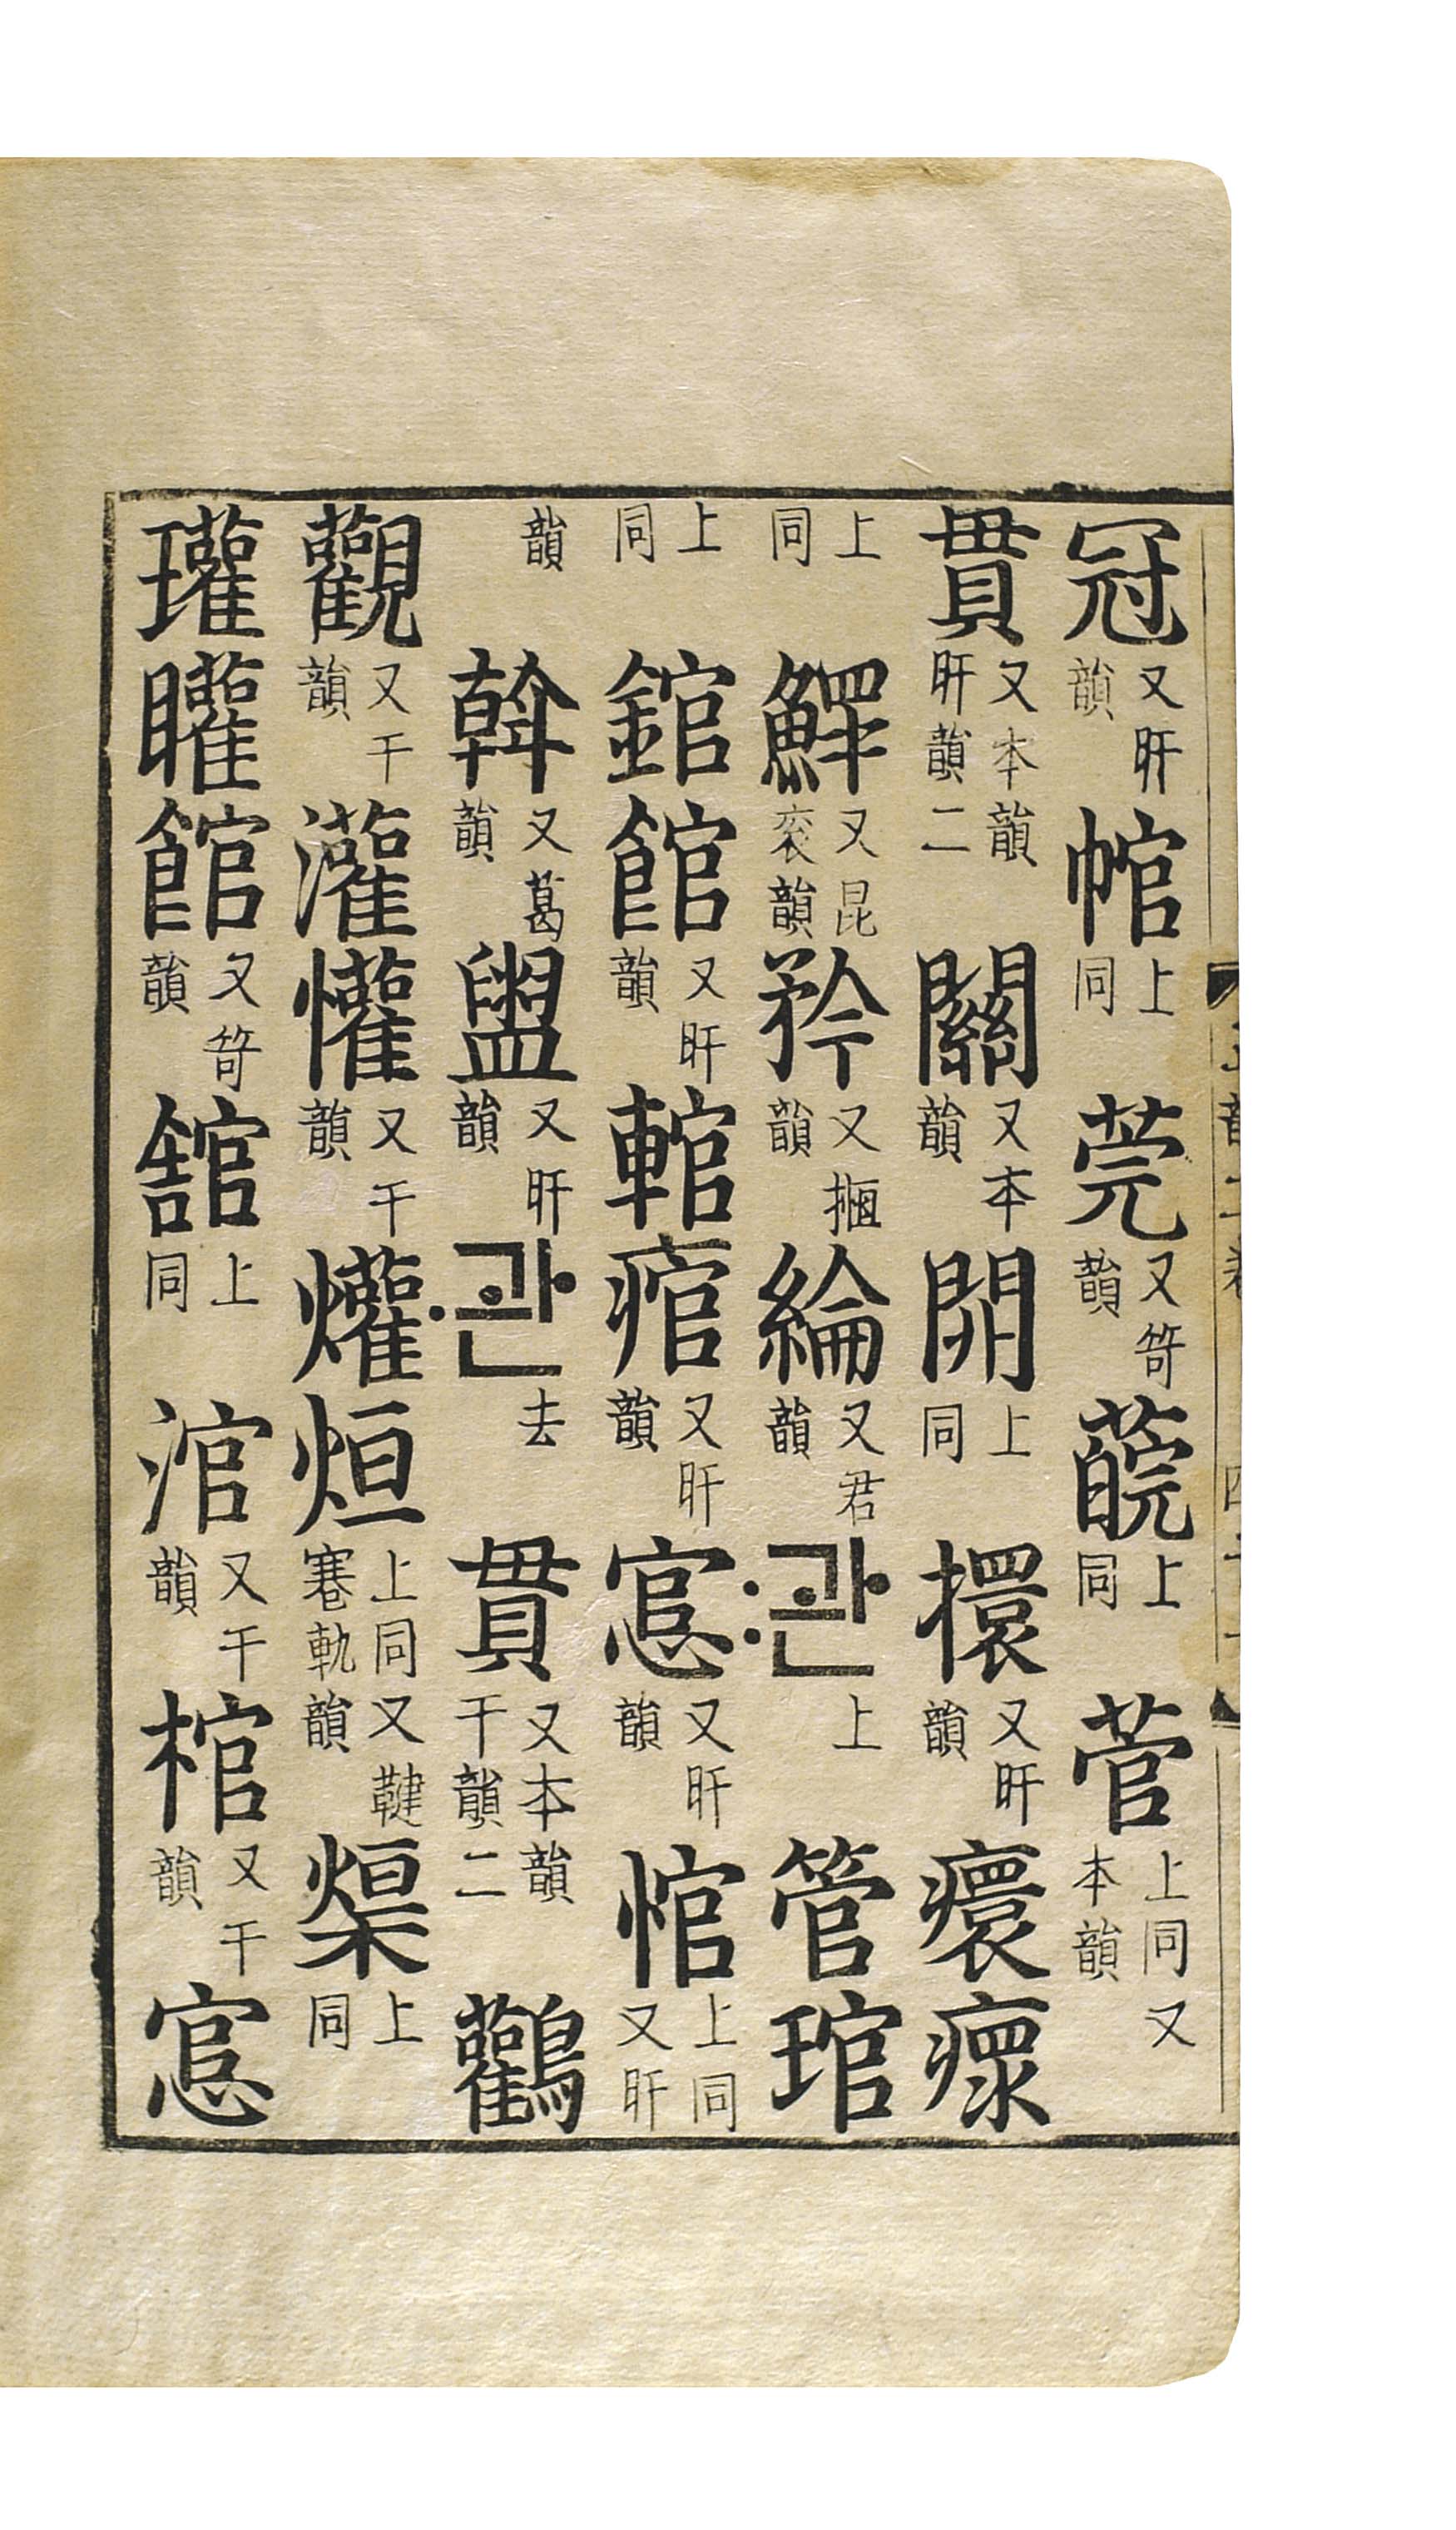 冠又旰韻㡈上同莞又笴韻上同菅上同又本韻
貫又本韻旰韻二關又本韻上同擐又旰韻癏瘝
上同鰥又昆衮韻矜又韻綸又君韻〯관上管琯
上同錧館又旰韻輨痯又旰韻悹又旰韻悺上同又旰
韻斡又葛韻盥又旰韻〮관去貫又本韻干韻二鸛
觀又干韻灌懽又干韻爟烜上同又鞬寋軌韻上同
瓘矔館又笴韻舘上同涫又干韻棺又干韻悹